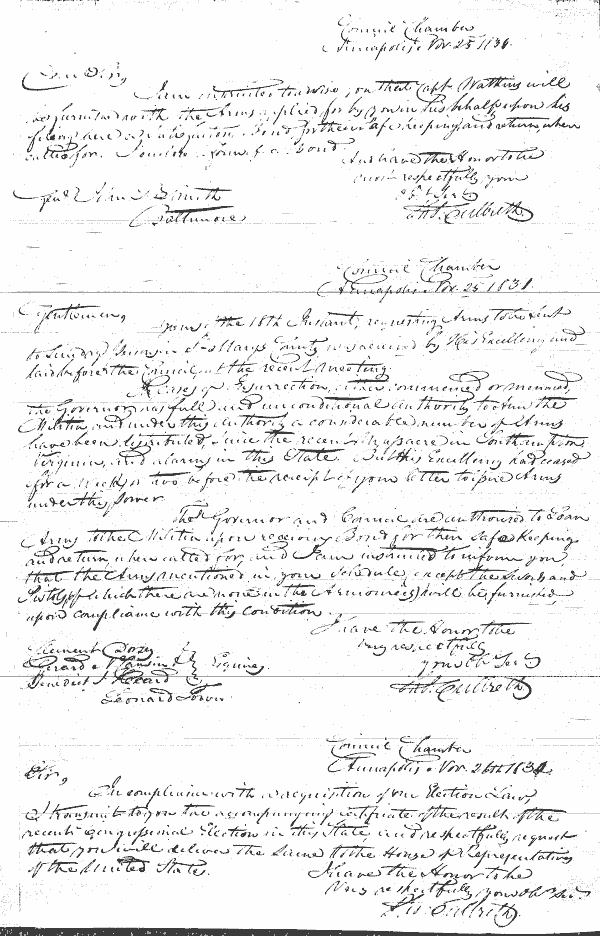 Council Chamber
Annapolis Nov. 25 1831.
Dear Sir,
I am instructed to advise you that Capt Watkins will
be furnished with the Arms applied for by you in his behalf upon his
filing here a Bond for their safe keeping and return when
called for. I enclose a form of a Bond.
And have the Honor to be
very respectfully your
Ob. Servt
Ths. Culbreth
Genl
Baltimore
Council Chamber
Annapolis Nov. 25 1831.
Gentlemen,
yours of the 18th Instant, requesting Arms to be sent
to Sundry in St. Marys County was received by His Excellency and
laid before the Council at the recent meeting.
In Cases of Insurrection, either commenced or menaced,
the Governor has full and unconditional authority to arm the
Militia, and under this authority a considerable number of Arms
have been distributed, since the recent Massacre in Southampton
Virginia, and alarms in this State. But His Excellency had ceased
for a week or two before the receipt of your letter to give Arms
under this power
The Governor and Council are authorised to loan
Arms to the Militia upon receiving Bond for their Safe Keeping
and return, when called for, and I am instructed to inform you
that the Arms mentioned in your Schedule, except the Swords and
Pistols (of which there are none in the Armouries) will be furnished
upon compliance with this condition.
I have the Honor to be
very respectfully
your Ob. Servt
Ths. Culbreth
Clement Dorsey
Gerard Esquires
Benedict J. Heard
Leonard
Council Chamber
Annapolis Nov. 26th 1831.
Sir,
In compliance with a requisition of our Election Law,
I transmit to you the accompanying certificate of the result of the
recent Congressional Election in this State, and respectfully request
that you will deliver the Same to the House of Representatives
of the United States.
I have the Honor to be
Very respectfully your Ob. Srv.
Ths. Culbreth.